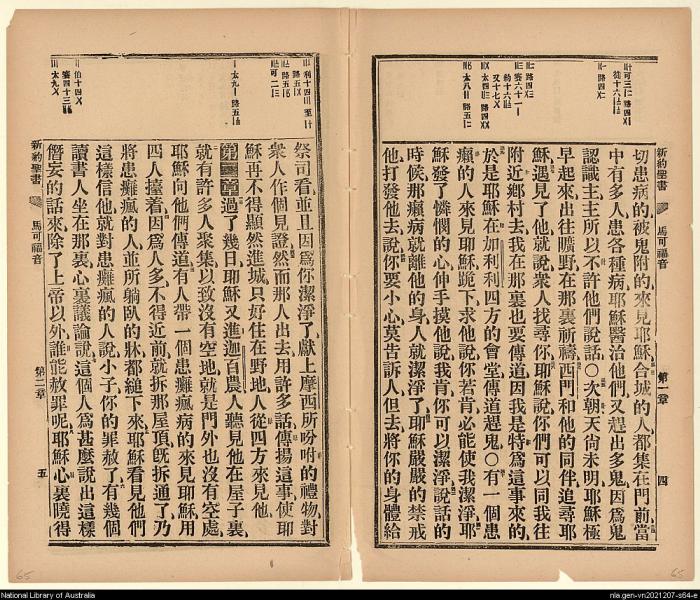 新約聖書
馬可福音
第一章
四
切患病的被鬼附的來見耶穌合城的人都集在門前當
中有多人患各種病耶穌醫治他們又趕出多鬼因爲鬼
認識主主所以不許他們說話○次朝天尙未明耶穌極
早起來出往曠野在那裏祈禱西門和他的同伴追尋耶
穌遇見了他就說衆人找尋你耶穌說你們可以同我往
附近鄉村去我在那裏也要傳道因我是特爲這事來的
於是耶穌在加利利四方的會堂傳道趕鬼○有一個患
癩病的人來見耶穌跪下求他說你若肯必能使我潔淨耶
穌發了憐憫的心伸手摸他說我肯你可以潔淨說話的
時候那癩病就離他的身人就潔淨了耶穌嚴嚴的禁戒
他打發他去說你要小心莫告訴人但去將你的身體給
祭司看並且因爲你潔淨了獻上摩西所吩咐的禮物對
衆人作個見證然而那人出去用許多話傳揚這事使耶
穌再不得顯然進城只好住在野地人從四方來見他
第二章過了幾日耶穌又進迦百農人聽見他在屋子裏
就有許多人聚集以致沒有空地就是門外也沒有空處
耶穌向他們傳道有人帶一個患癱瘋病的來見耶穌用
四人擡着因爲人多不得近前就拆那屋頂旣拆通了乃
將患癱瘋的人並所躺臥的牀都縋下來耶穌看見他們
這樣信他就對患癱瘋的人說小子你的罪赦了有幾個
讀書人坐在那裏心裏議論說這個人爲甚麼說出這樣
僭妄的話來除了上帝以外誰能赦罪呢耶穌心裏曉得
新約聖書
馬可福音
第二章
五
65
65
National Library of Australia
nla.gen-vn2021207-s64-e